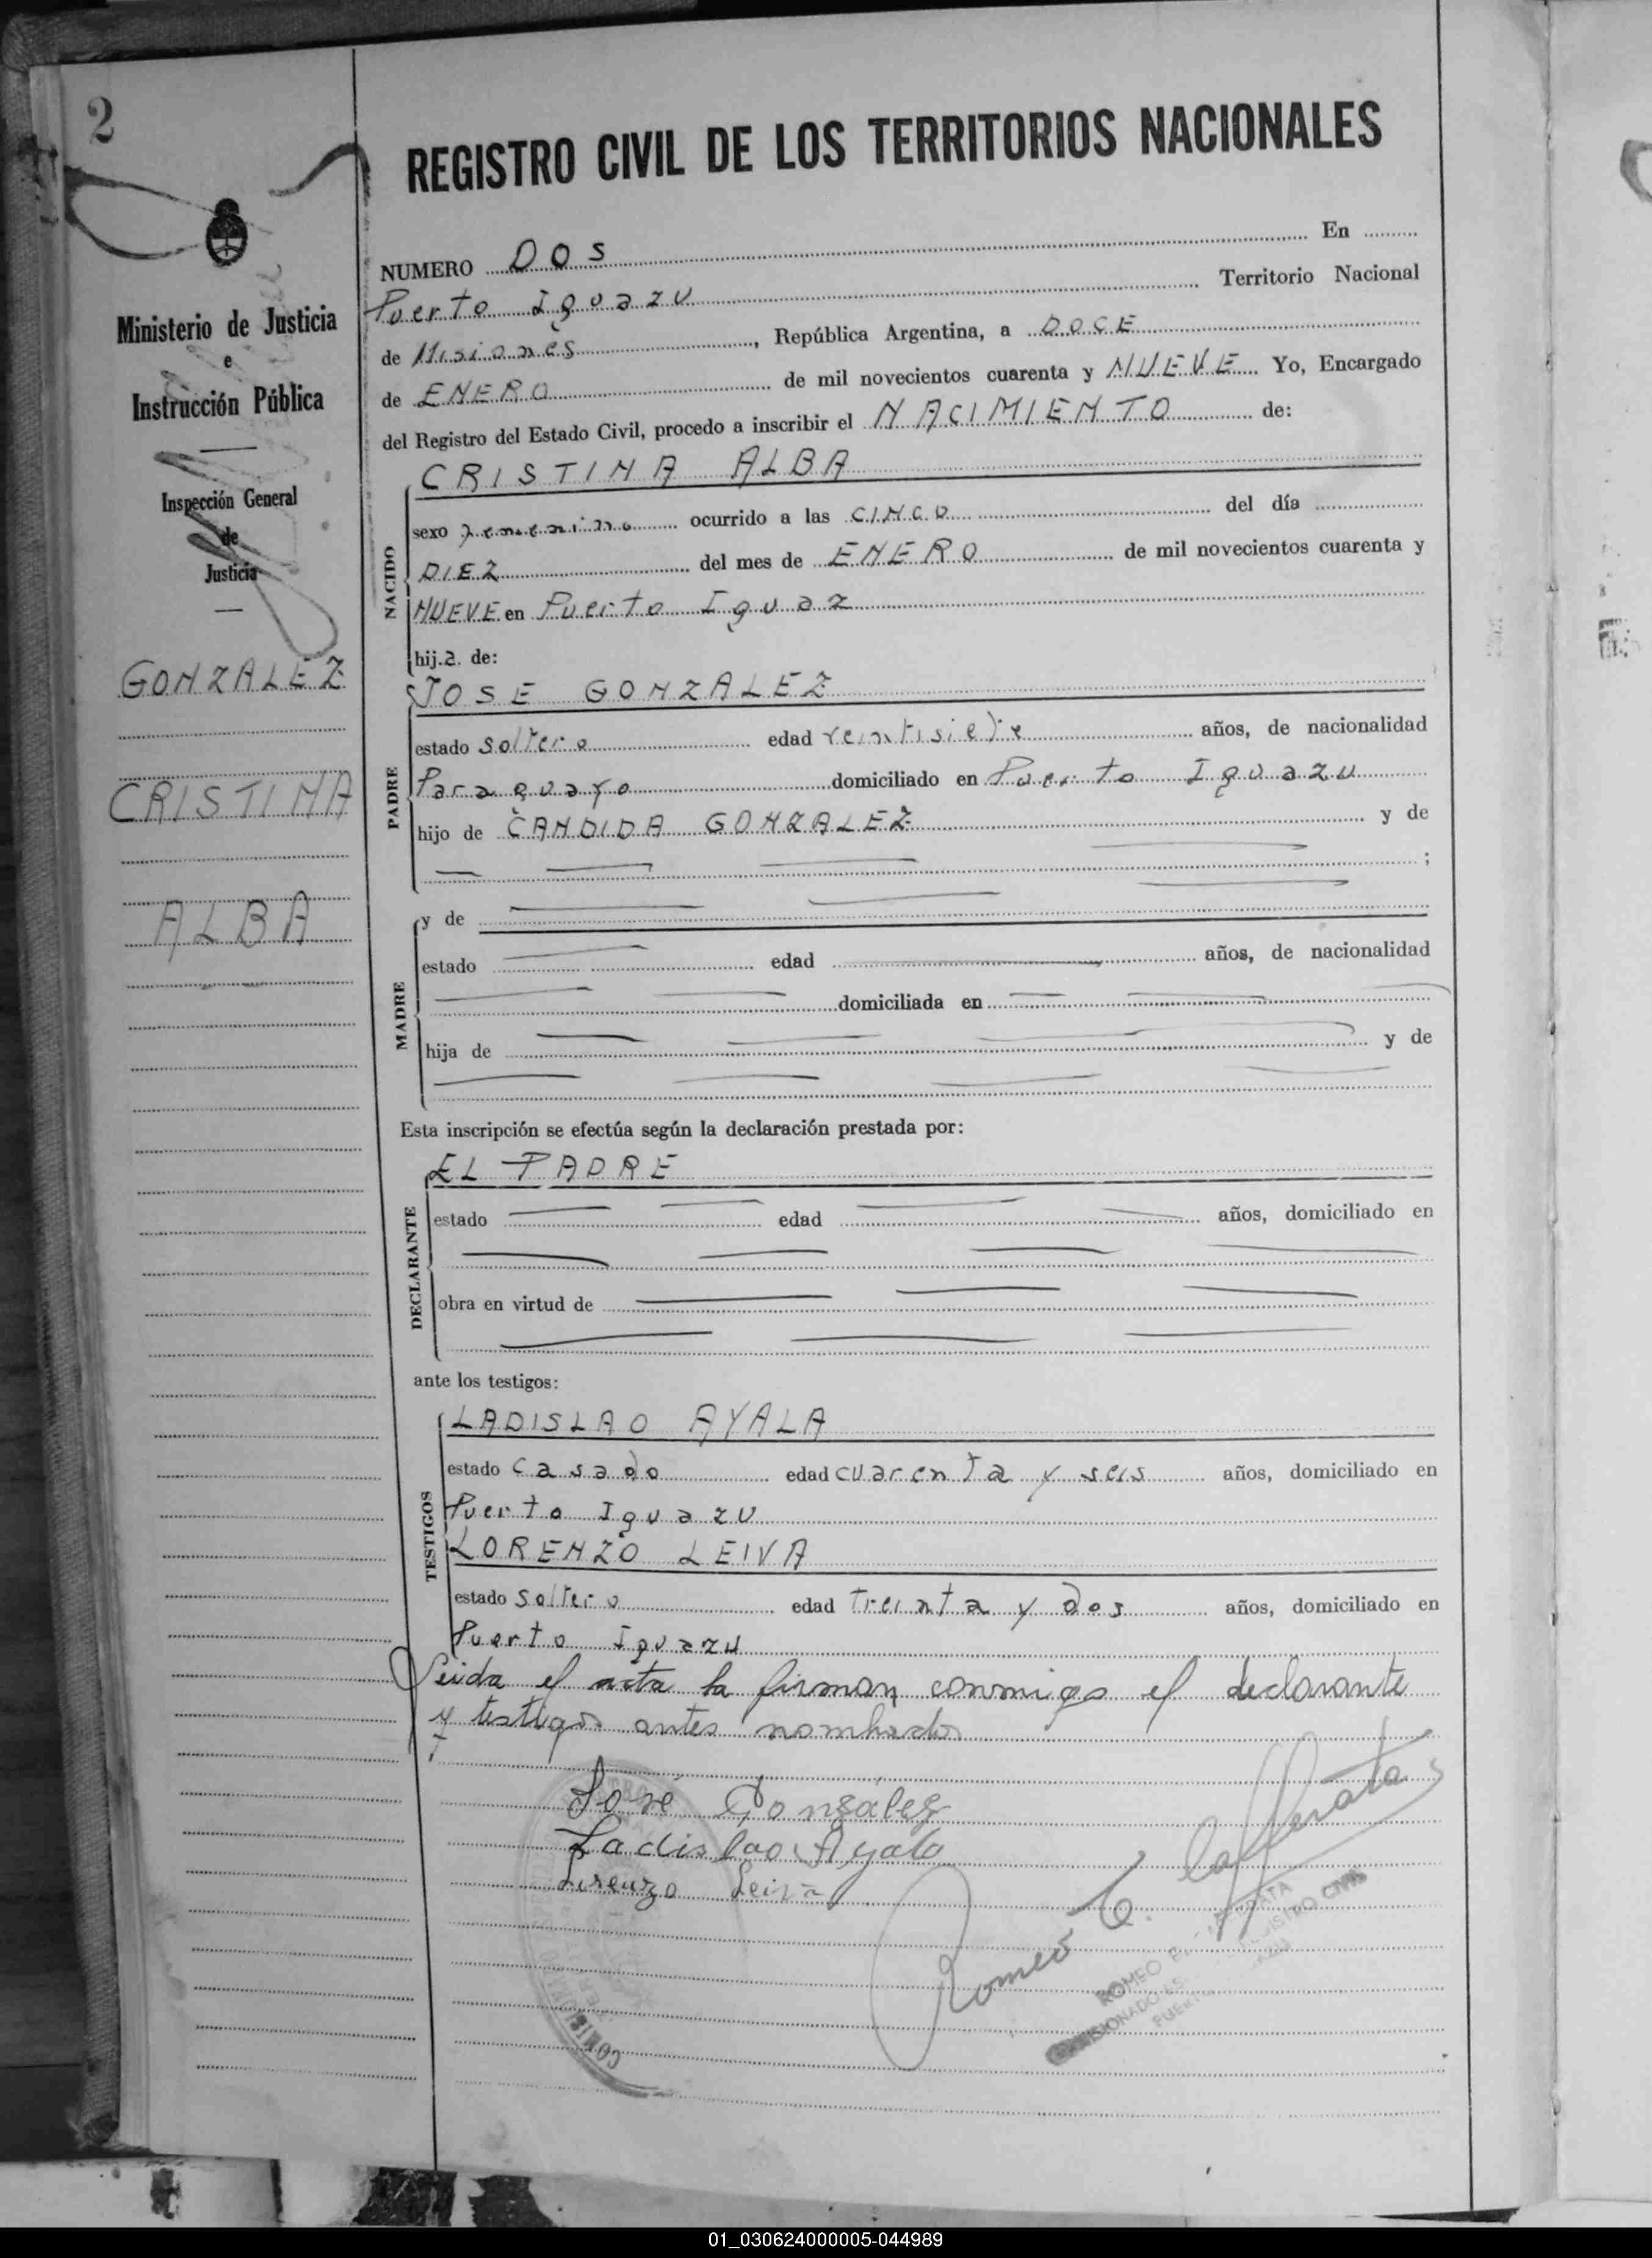 2
Ministerio de Justicia
e
Instrucción Pública
Inspección General
de
Justicia
GONZALEZ
CRISTINA
ALBA
REGISTRO CIVIL DE LOS TERRITORIOS NACIONALES
NUMERO DOS En
Puerto Iguazu Territorio Nacional
de Misiones, República Argentina, a DOCE
de ENERO de mil novecientos cuarenta y NUEVE Yo, Encargado
del Registro del Estado Civil, procedo a inscribir el NACIMIENTO de:
NACIDO
CRISTINA ALBA
sexo femenino ocurrido a las CINCO del día
DIEZ del mes de ENERO de mil novecientos cuarenta y
NUEVE en Puerto Iguaz
hij.a. de:
PADRE
JOSE GONZALEZ
estado soltero edad veintisiete años, de nacionalidad
Paraguayo domiciliado en Puerto Iguazu
hijo de CANDIDA GONZALEZ y de
;
MADRE
y de
estado edad años, de nacionalidad
domiciliada en
hija de y de
Esta inscripción se efectúa según la declaración prestada por:
DECLARANTE
EL PADRE
estado edad años, domiciliado en
obra en virtud de
ante los testigos:
TESTIGOS
LADISLAO AYALA
estado casado edad cuarenta y seis años, domiciliado en
Puerto Iguazu
LORENZO LEIVA
estado soltero edad treinta y dos años, domiciliado en
Puerto Iguazu
Leida el acta la firman conmigo el declarante
y testigos antes nombrados
José Gonzáles
Ladislao Ayala
Lorenzo Leiva
Romeo E. Lafferata
ROMEO E.
CIVIL
01_030624000005-044989